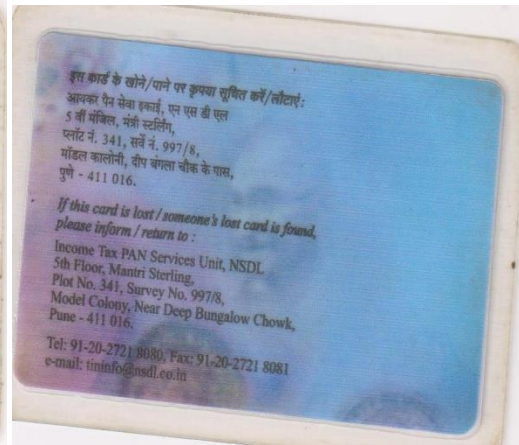 इस कार्ड के खोने/पाने पर कृपया सूचित करें/लौटाएं :
आयकर पैन सेवा इकाई, एन एस डी एल
5 वीं मंजिल, मंत्री स्टर्लिंग,
प्लॉट नं. 341, सर्वे नं. 997/8,
मॉडल कालोनी, दीप बंगला चौक के पास,
पुणे - 411 016.
If this card is lost / someone's lost card is found,
please inform / return to :
Income Tax PAN Services Unit, NSDL
5th Floor, Mantri Sterling,
Plot No. 341, Survey No. 997/8,
Model Colony, Near Deep Bungalow Chowk,
Pune - 411 016.
Tel: 91-20-2721 8080, Fax: 91-20-2721 8081
e-mail: tininfo@nsdl.co.in